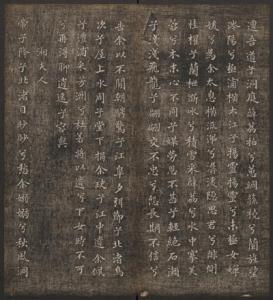 邅吾道兮洞庭薜荔柏兮蕙綢蓀橈兮蘭旌望
涔陽兮極浦橫大江兮揚靈揚靈兮未極女嬋
媛兮為余太息橫流涕兮潺湲隱思君兮陫側
桂櫂兮蘭枻斲冰兮積雪采薜荔兮水中搴芙
蓉兮木末心不同兮媒勞恩不甚兮輕絕石瀨
兮淺淺飛龍兮翩翩交不忠兮怨長期不信兮
告余以不閒朝騁騖兮江皋夕弭節兮北渚鳥
次兮屋上水周兮堂下捐余玦兮江中遺余佩
兮澧浦采芳洲兮杜若將以遺兮下女時不可
兮再得聊逍遙兮容與
湘夫人
帝子降兮北渚目眇眇兮愁余嫋嫋兮秋風洞